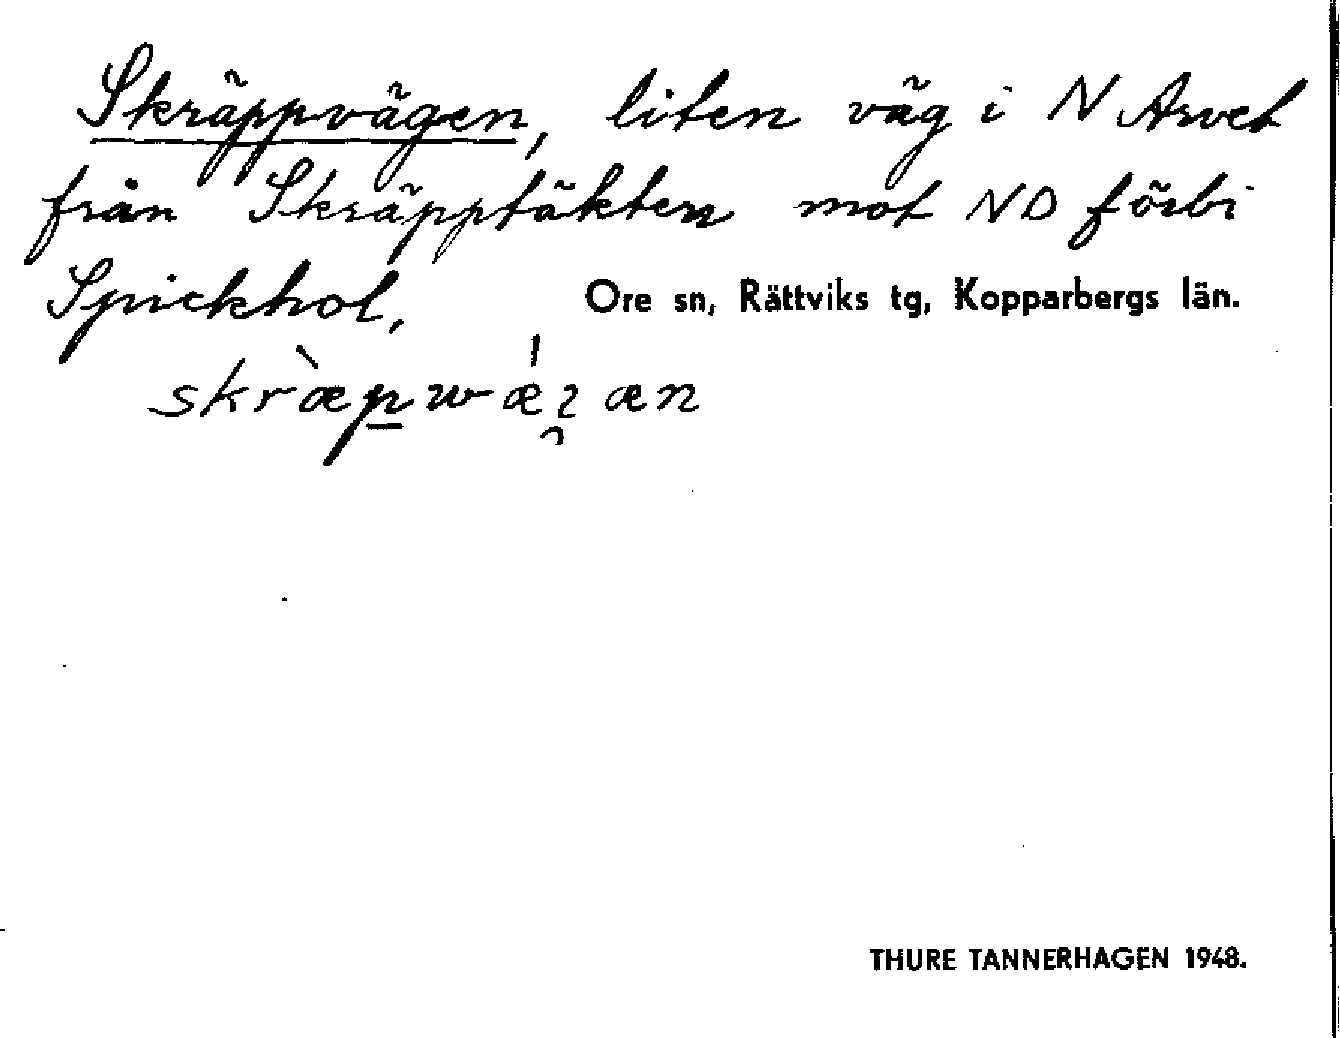 Skräppvägen, liten väg i N Arvet
från Skräpptäkten mot NO förbi
Spickhol,
Ore sn, Rättviks tg, Kopparbergs län.
skr`æpwǽɀæn
THURE TANNERHAGEN 1948.